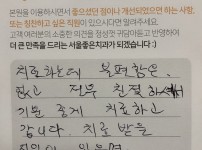 본원을 이용하시면서 좋으셨던 점이나 개선되었으면 하는 사항,
또는 칭찬하고 싶은 직원이 있으시다면 말해주세요.
고객 여러분의 소중한 의견을 정성껏 귀담아듣고 반영하여
더 큰 만족을 드리는 서울좋은치과가 되겠습니다 : )
치료하는데 불편함은
전혀 친절하셔서
기분 좋게 치료하고
갑니다 치료 받을